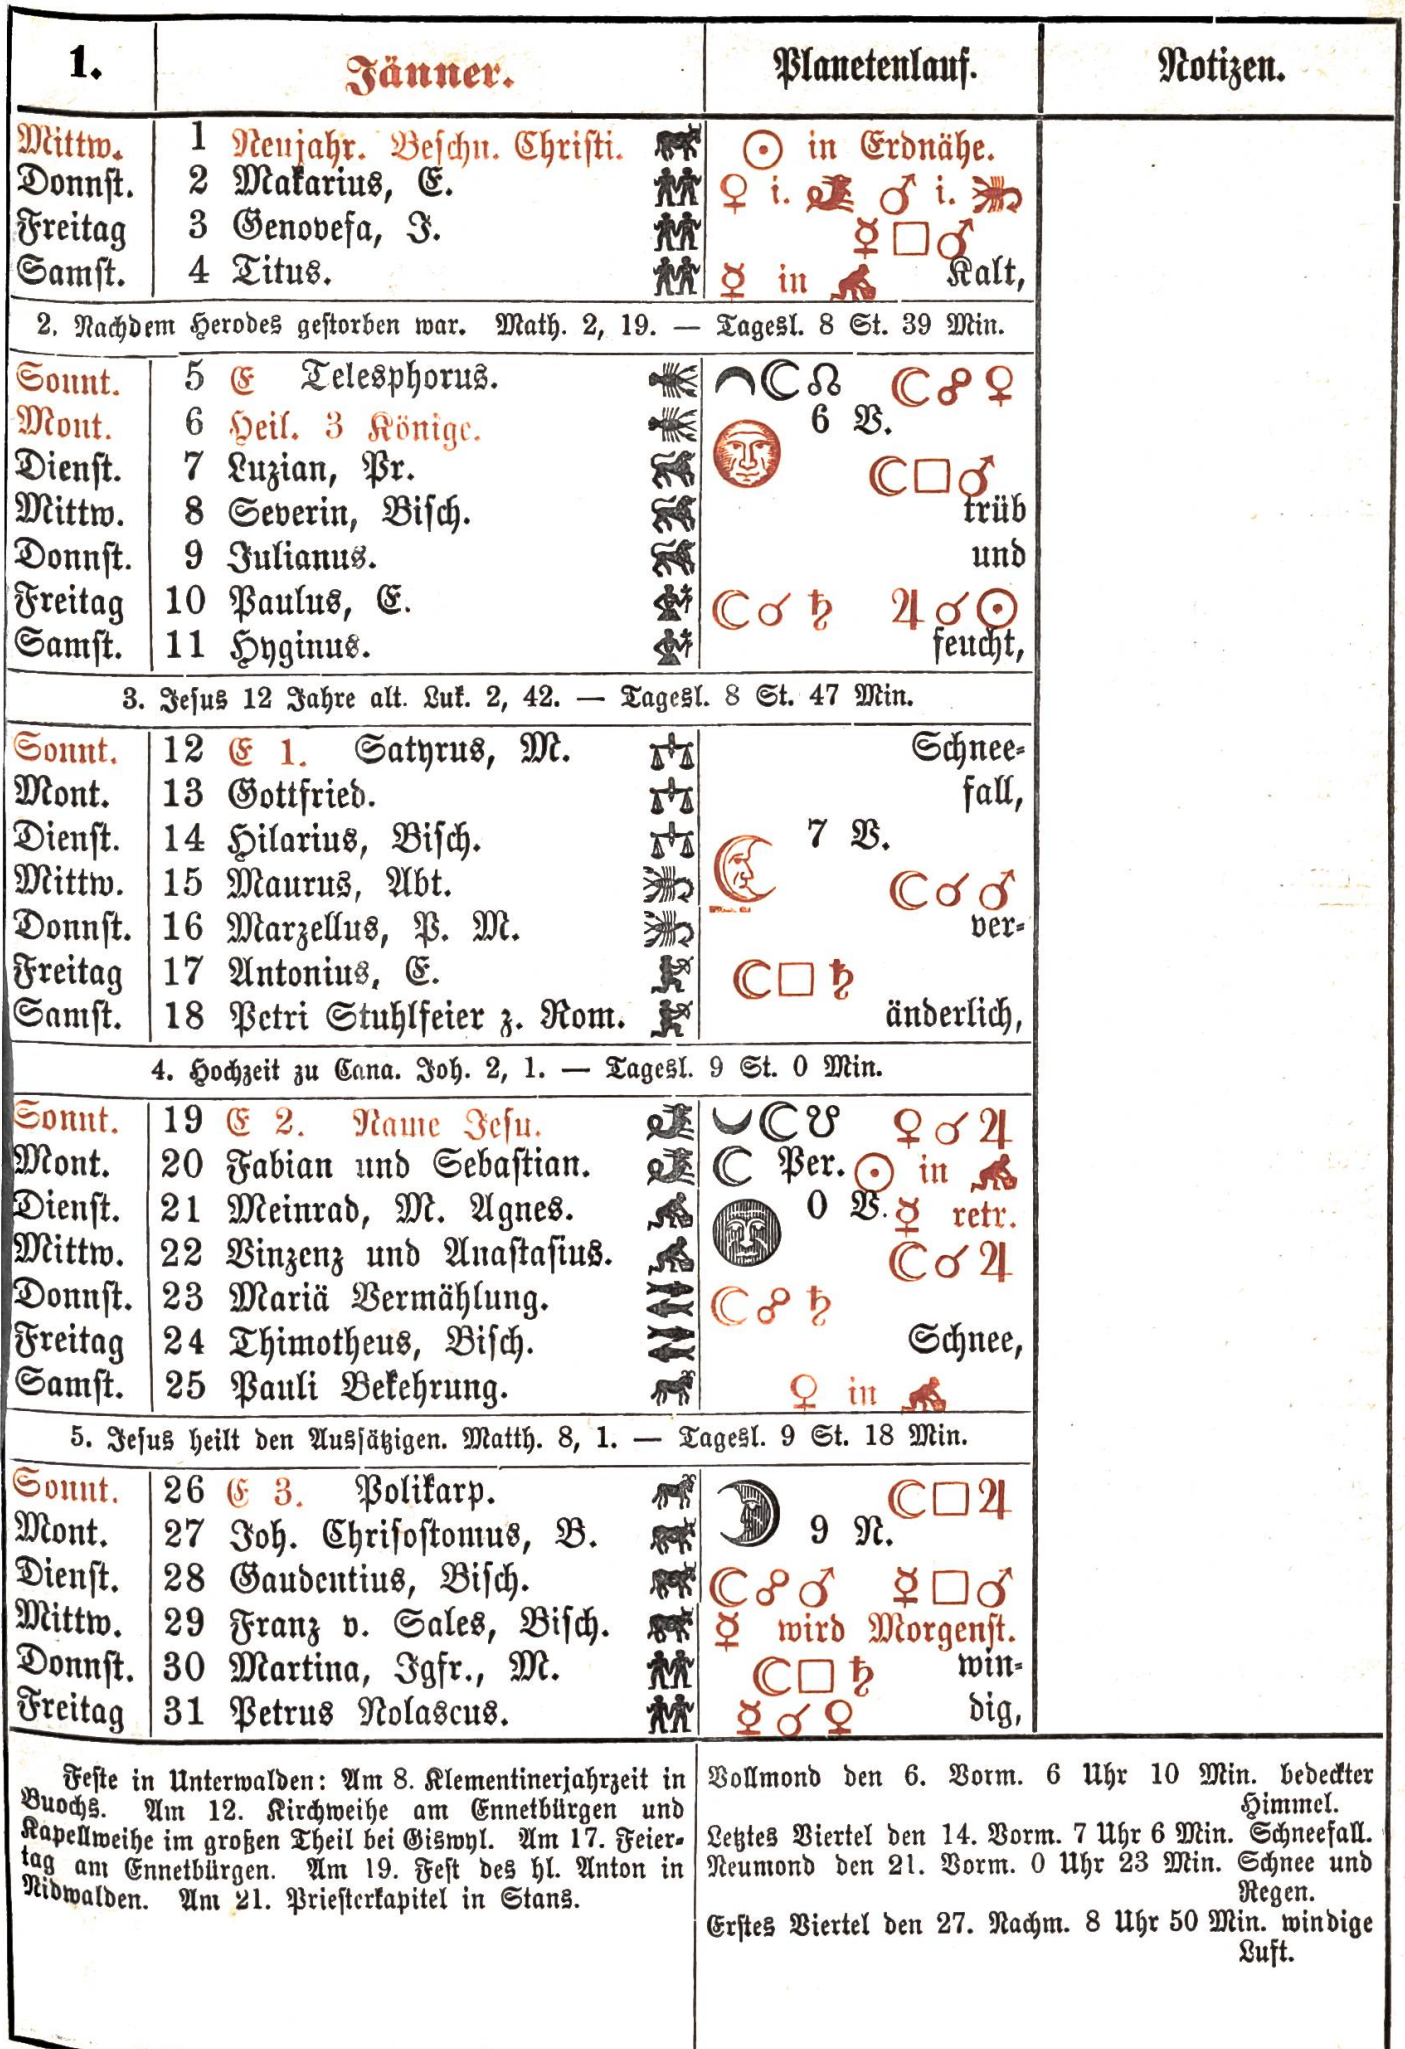 1. Jänner. Planetenlauf. Notizen.
Mittw. 1 Neujahr. Beschn. Christi. ☉ in Erdnähe.
Donnst. 2 Makarius, E. ♀ i. ♂ i.
Freitag 3 Genovefa, J. ☿□♂
Samst. 4 Titus. ☿ in Kalt,
2. Nachdem Herodes gestorben war. Math. 2, 19. — Tagesl. 8 St. 39 Min.
Sonnt. 5 E Telesphorus. ☾☊ ☾☍♀
Mont. 6 Heil. 3 Könige. 6 V.
Dienst. 7 Luzian, Pr. ☾□♂
Mittw. 8 Severin, Bisch. trüb
Donnst. 9 Julianus. und
Freitag 10 Paulus, E. ☾☌♄ ♃☌☉
Samst. 11 Hyginus. feucht,
3. Jesus 12 Jahre alt. Luk. 2, 42. — Tagesl. 8 St. 47 Min.
Sonnt. 12 E 1. Satyrus, M. Schnee-
Mont. 13 Gottfried. fall,
Dienst. 14 Hilarius, Bisch. 7 V.
Mittw. 15 Maurus, Abt. ☾☌♂
Donnst. 16 Marzellus, P. M. ver-
Freitag 17 Antonius, E. ☾□♄
Samst. 18 Petri Stuhlfeier z. Rom. änderlich,
4. Hochzeit zu Cana. Joh. 2, 1. — Tagesl. 9 St. 0 Min.
Sonnt. 19 E 2. Name Jesu. ☾☋ ♀☌♃
Mont. 20 Fabian und Sebastian. ☾ Per. ☉ in
Dienst. 21 Meinrad, M. Agnes. 0 V. ☿ retr.
Mittw. 22 Vinzenz und Anastasius. ☾☌♃
Donnst. 23 Mariä Vermählung. ☾☍♄
Freitag 24 Thimotheus, Bisch. Schnee,
Samst. 25 Pauli Bekehrung. ♀ in
5. Jesus heilt den Aussätzigen. Matth. 8, 1. — Tagesl. 9 St. 18 Min.
Sonnt. 26 E 3. Polikarp. ☾□♃
Mont. 27 Joh. Chrisostomus, B. 9 N.
Dienst. 28 Gaudentius, Bisch. ☾☍♂ ☿□♂
Mittw. 29 Franz v. Sales, Bisch. ☿ wird Morgenst.
Donnst. 30 Martina, Igfr., M. ☾□♄ win-
Freitag 31 Petrus Nolascus. ☿☌♀ dig,
Feste in Unterwalden: Am 8. Klementinerjahrzeit in
Buochs. Am 12. Kirchweihe am Ennetbürgen und
Kapellweihe im großen Theil bei Giswyl. Am 17. Feier-
tag am Ennetbürgen. Am 19. Fest des hl. Anton in
Nidwalden. Am 21. Priesterkapitel in Stans.
Vollmond den 6. Vorm. 6 Uhr 10 Min. bedeckter
Himmel.
Letztes Viertel den 14. Vorm. 7 Uhr 6 Min. Schneefall.
Neumond den 21. Vorm. 0 Uhr 23 Min. Schnee und
Regen.
Erstes Viertel den 27. Nachm. 8 Uhr 50 Min. windige
Luft.